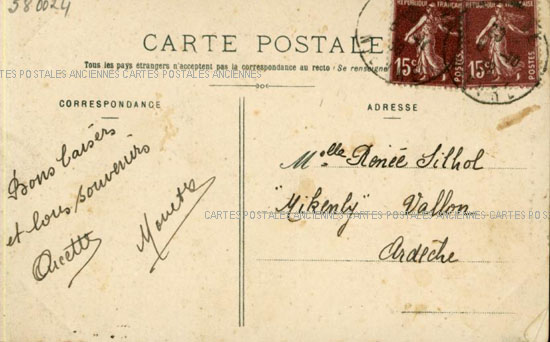 580024
RÉPUBLIQUE FRANÇAISE
15c POSTES
15c POSTES
CARTE POSTALE
Tous les pays étrangers n'acceptent pas la correspondance au recto : Se renseigner
CARTES POSTALES ANCIENNES CARTES POSTALES ANCIENNES
CORRESPONDANCE
Bons baisers
et bons souvenirs
Arcette
ADRESSE
Melle Renée Silhol
"Mikenly" Vallon
Ardèche
CARTES POSTALES ANCIENNES CARTES POSTALES ANCIENNES CARTES POSTALES